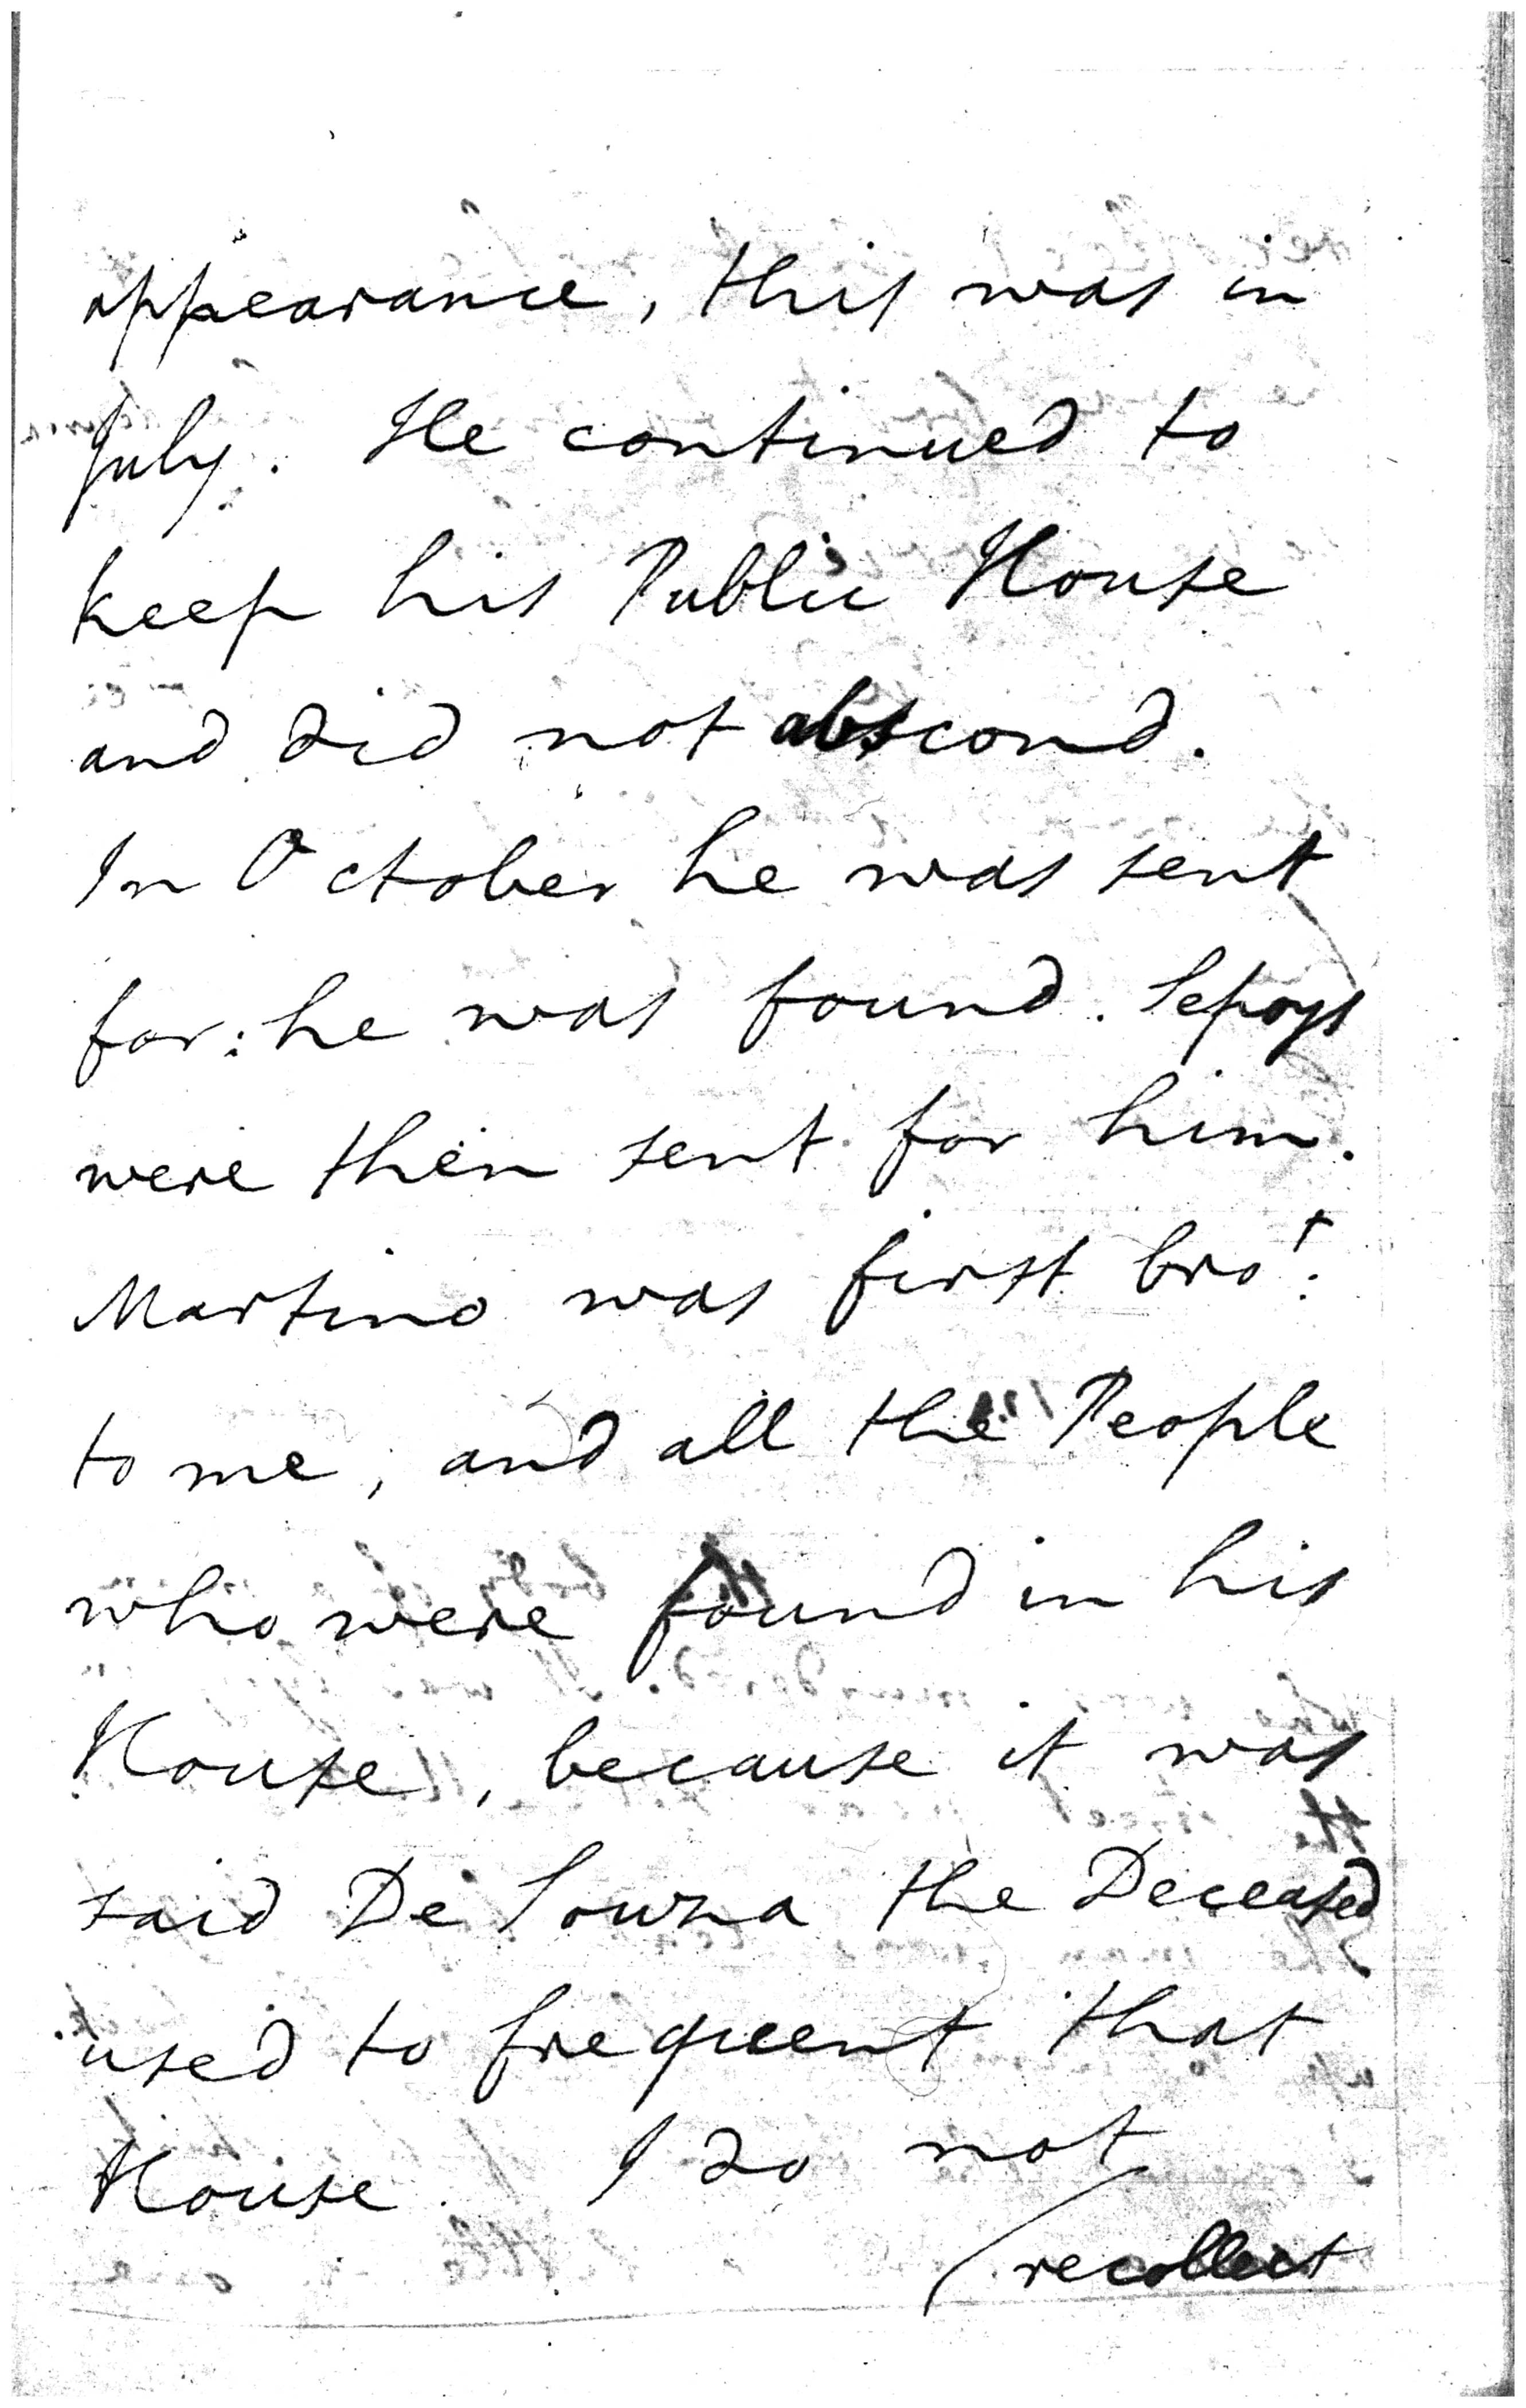 appearance, this was in
July. He continued to
keep his Public House
and did not abscond.
In October he was sent
for: he was found. Sepoys
were then sent for him.
Martino was first bro.t
to me, and all the People
who were found in his
House, because it was
said De Souza the Deceased
used to frequent that
House. I do not
recollect